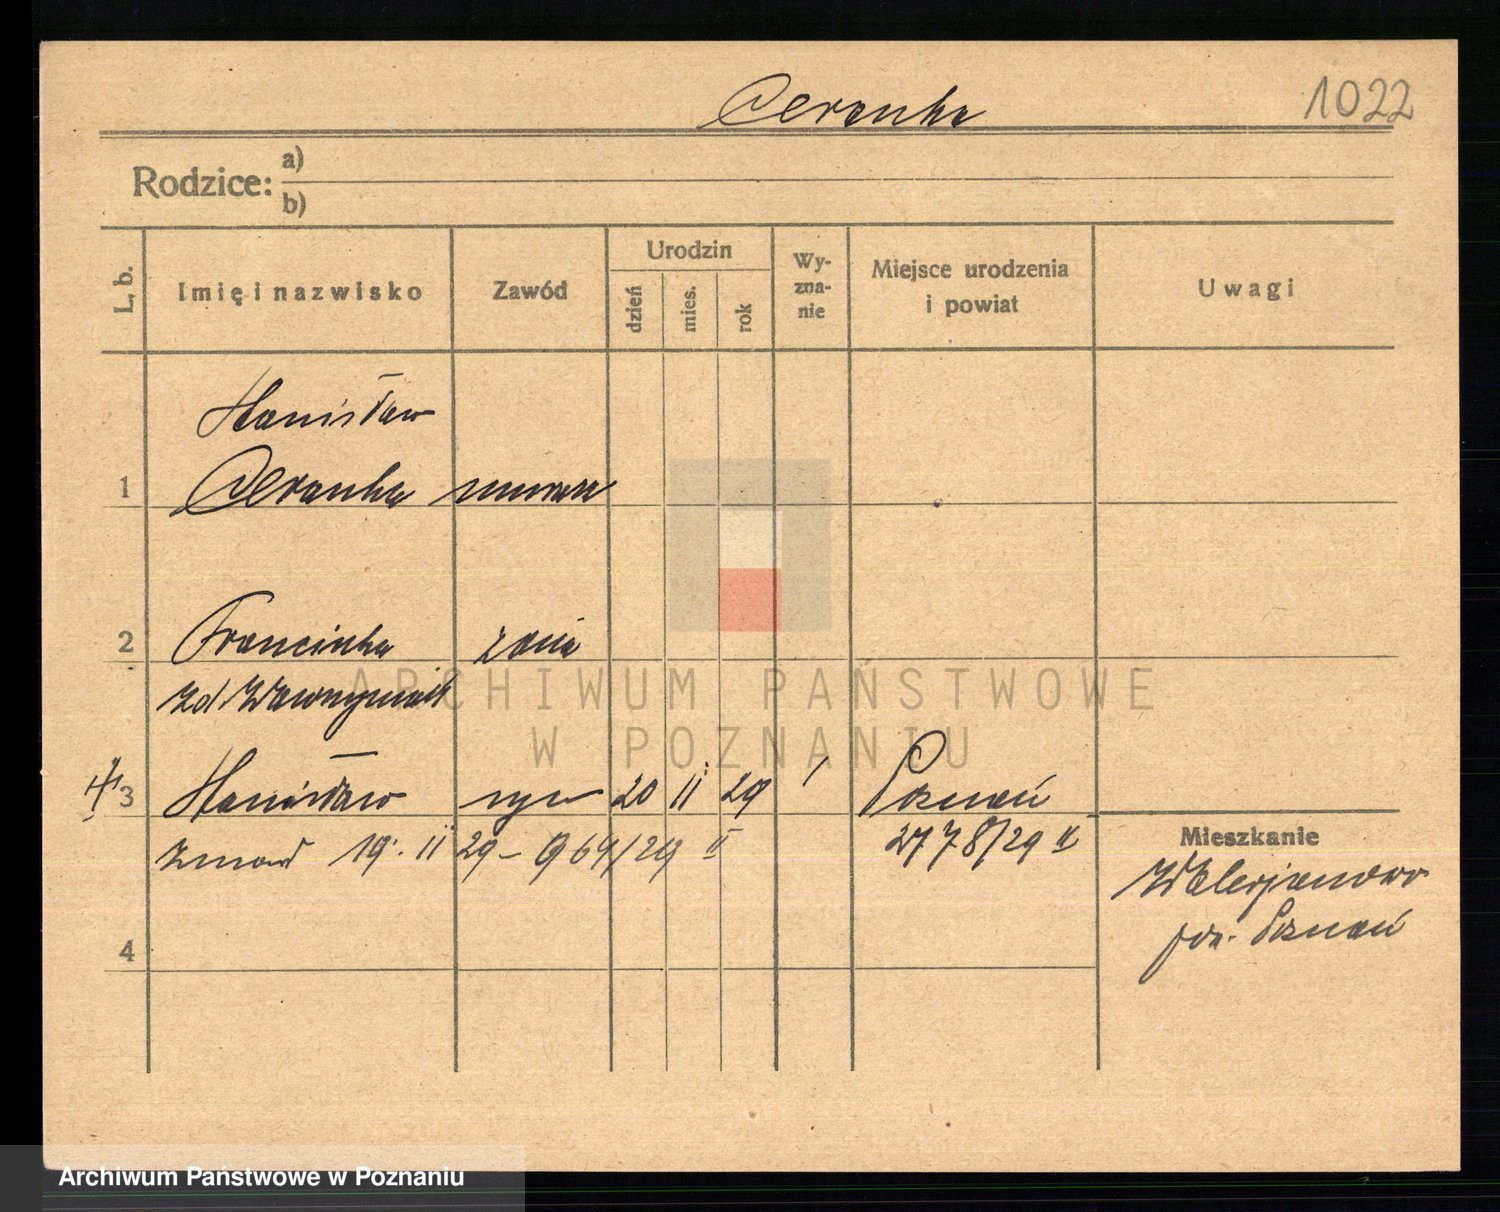 Ceranka 1022
Rodzice: a)
b)
L. b. Imię i nazwisko Zawód Urodzin dzień mies. rok Wy-zna-nie Miejsce urodzenia i powiat Uwagi
Stanisław
1 Ceranka murarz
2 Franciszka żona
zd. Wawrzyniak
3 Stanisław syn 20 II 29 Poznań
zmarł 19. II 29 - 964/29 II 2778/29 II
Mieszkanie
Walerjanowo
4 pow. Poznań
ARCHIWUM PAŃSTWOWE
W POZNANIU
Archiwum Państwowe w Poznaniu